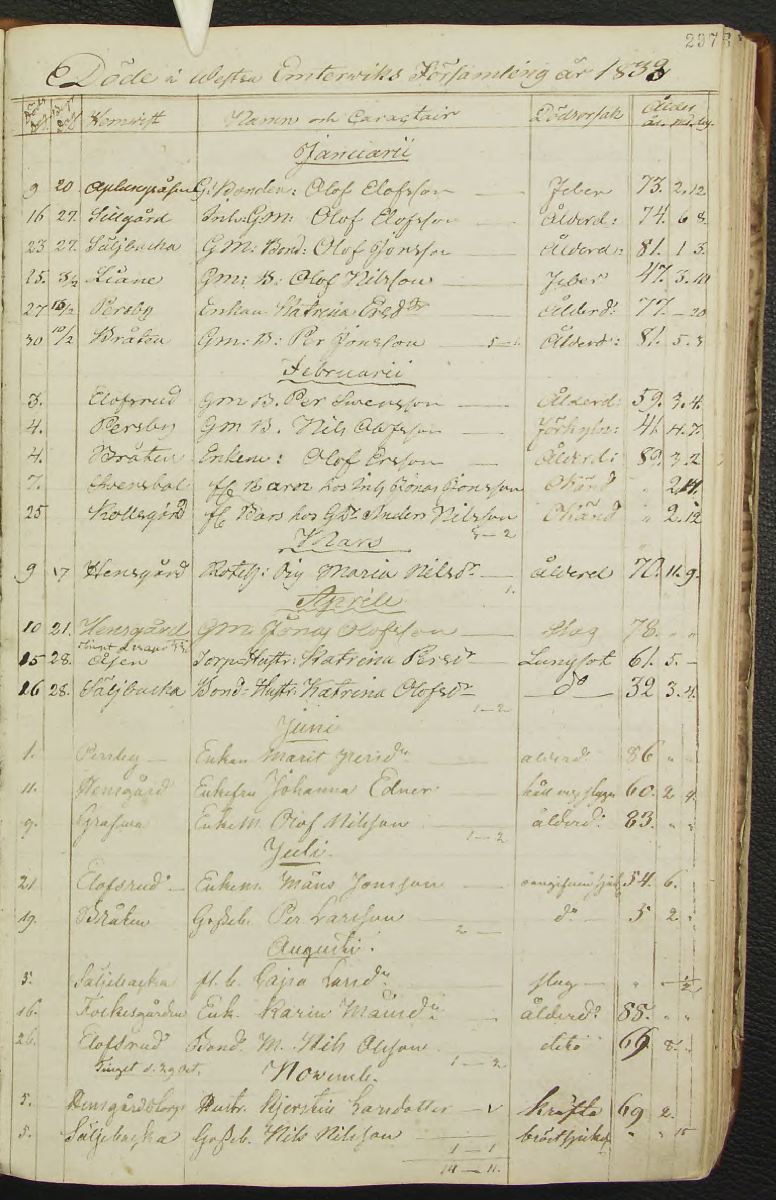 297
Döde i Westra Emterwiks Församling år 1833
Hemvist Namn och Caractair Dödsorsak Ålder
Januarii
9 20 G. Bonden: Olof Elofsson Feber 73. 2. 12
16 27. Sillgård Gm: Olof Elofsson Ålderd: 74. 6 8.
23 27. Säljbacka Gm: Bond: Olof Jonsson Ålderd: 81. 1 3.
25. 3/2 Gm: B: Olof Nilsson Feber 47. 3. 10
27 10/2 Persby Enkan Katrina Persdr Ålderd: 77. – 20
30 10/2 Bråten Gm: B: Per Jonsson 5–1. Ålderd: 81. 5. 3
Februarii
3. Elofsrud Gm B. Per Swensson Ålderd: 59. 3. 4.
4. Persby Gm B. Nils Olofsson 41. 4. 7.
4. Bråten Enkem: Olof Ersson Ålderd: 89. 3. 2
7. fl. Barn hos Jonas Jonsson Okänd " 2.
25 fl. Barn hos Anders Nilsson Okänd " 2. 12
5–2
Mars
9 17 Hensgård Pig Maria Nilsdr Ålderd 70. 11. 9.
1.
Aprill
10 21. Hensgård Gm Jonas Olofsson Slag 78. " "
15 28. Torp. Hustr: Katrina Persdr Lungsot 61. 5. –
26 28. Säljbacka Bond: Hustr: Katrina Olofsdr do 32 3. 4.
1–2
Juni
1. Persby Enkan Marit Persdr ålderd: 86 " "
11. Hensgård Enkefru Johanna Edner 60. 2 4.
9. Enkem. Olof Nilsson ålderd: 83. " "
1–2
Juli.
21 Elofsrud Enkem. Måns Jonsson 54. 6.
19. Bråten Gosseb. Per Larsson do 5 2 "
2 –
Augusti.
5. Säljebacka fl. b. Cajsa Larsdr slag " – 1/2
16. Fockesgården Enk. Karin Månsdr ålderd: 88. " "
26. Elofsrud Bond. M. Nils Olsson dito 69. 8. "
Tinget d. 29 Oct. 1–2
Novemb.
5. Hensgårdstorp Hustr. Kjerstin Larsdotter kräfta 69 2.
5. Säljebacka Gosseb. Nils Nilsson bröstsjukd. " " 15
1–1
14–11.